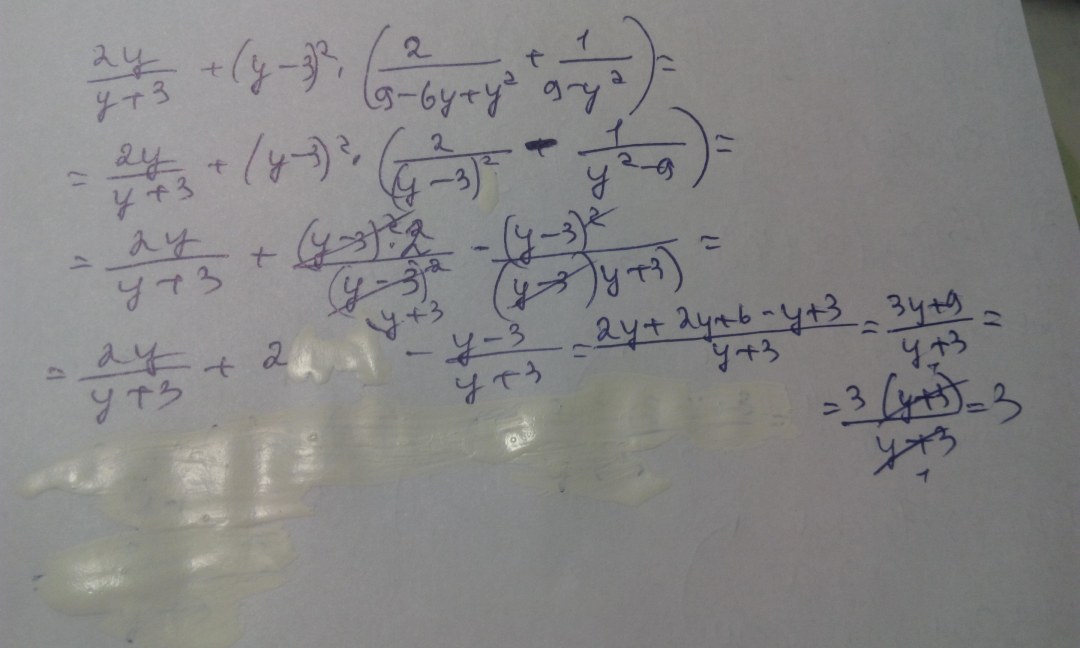 2y/(y+3) + (y-3)² · (2/(9-6y+y²) + 1/(9-y²)) =
= 2y/(y+3) + (y-3)² · (2/(y-3)² - 1/(y²-9)) =
= 2y/(y+3) + (y-3)²·2/(y-3)² - (y-3)²/((y-3)(y+3)) =
= 2y/(y+3) + 2 \y+3 - (y-3)/(y+3) = (2y+2y+6-y+3)/(y+3) = (3y+9)/(y+3) =
= 3(y+3)/(y+3) = 3